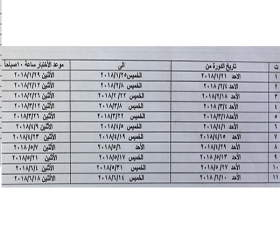 ت تاريخ الدورة من الى موعد الأختبار ساعة ١٠صباحاً
١ الاحد ٢٠١٨/١/٢١ الخميس ٢٠١٨/١/٢٥ الأثنين ٢٠١٨/١/٢٩
٢ الاحد ٢٠١٨/٢/٤ الخميس ٢٠١٨/٢/٨ الأثنين ٢٠١٨/٢/١٢
٣ الاحد ٢٠١٨/٢/١٨ الخميس ٢٠١٨/٢/٢٢ الأثنين
٤ الاحد ٢٠١٨/٣/٤ الخميس ٢٠١٨/٣/٨ الأثنين ٢٠١٨/٣/١٢
٥ الاحد ٢٠١٨/٣/١٨ الخميس ٢٠١٨/٣/٢٢ الأثنين ٢٠١٨/٣/٢٦
٦ الأحد ٢٠١٨/٤/١ الخميس ٢٠١٨/٤/٥ الأثنين ٢٠١٨/٤/٩
٧ الأحد ٢٠١٨/٤/١٥ الخميس ٢٠١٨/٤/١٩ الأثنين ٢٠١٨/٤/٢٣
٨ الأحد ٢٠١٨/٤/٢٩ الأحد ٢٠١٨/٥/٦ الأثنين ٢٠١٨/٥/٧
٩ الأحد ٢٠١٨/٥/١٣ الخميس ٢٠١٨/٥/١٧ الأثنين ٢٠١٨/٥/٢١
١٠ الأحد ٢٠١٨/٥/٢٧ الخميس ٢٠١٨/٥/٣١ الأثنين ٢٠١٨/٦/٤
١١ الأحد ٢٠١٨/٦/١٠ الخميس ٢٠١٨/٦/١٤ الأثنين ٢٠١٨/٦/١٨